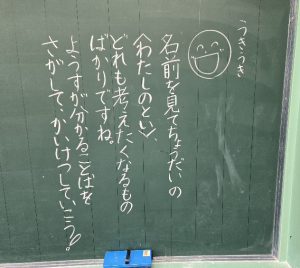 うきうき
名前を見てちょうだいの
〈わたしのとい〉、
どれも考えたくなるもの
ばかりですね。
ようすが分かることばを
さがして、かいけつしていこう。